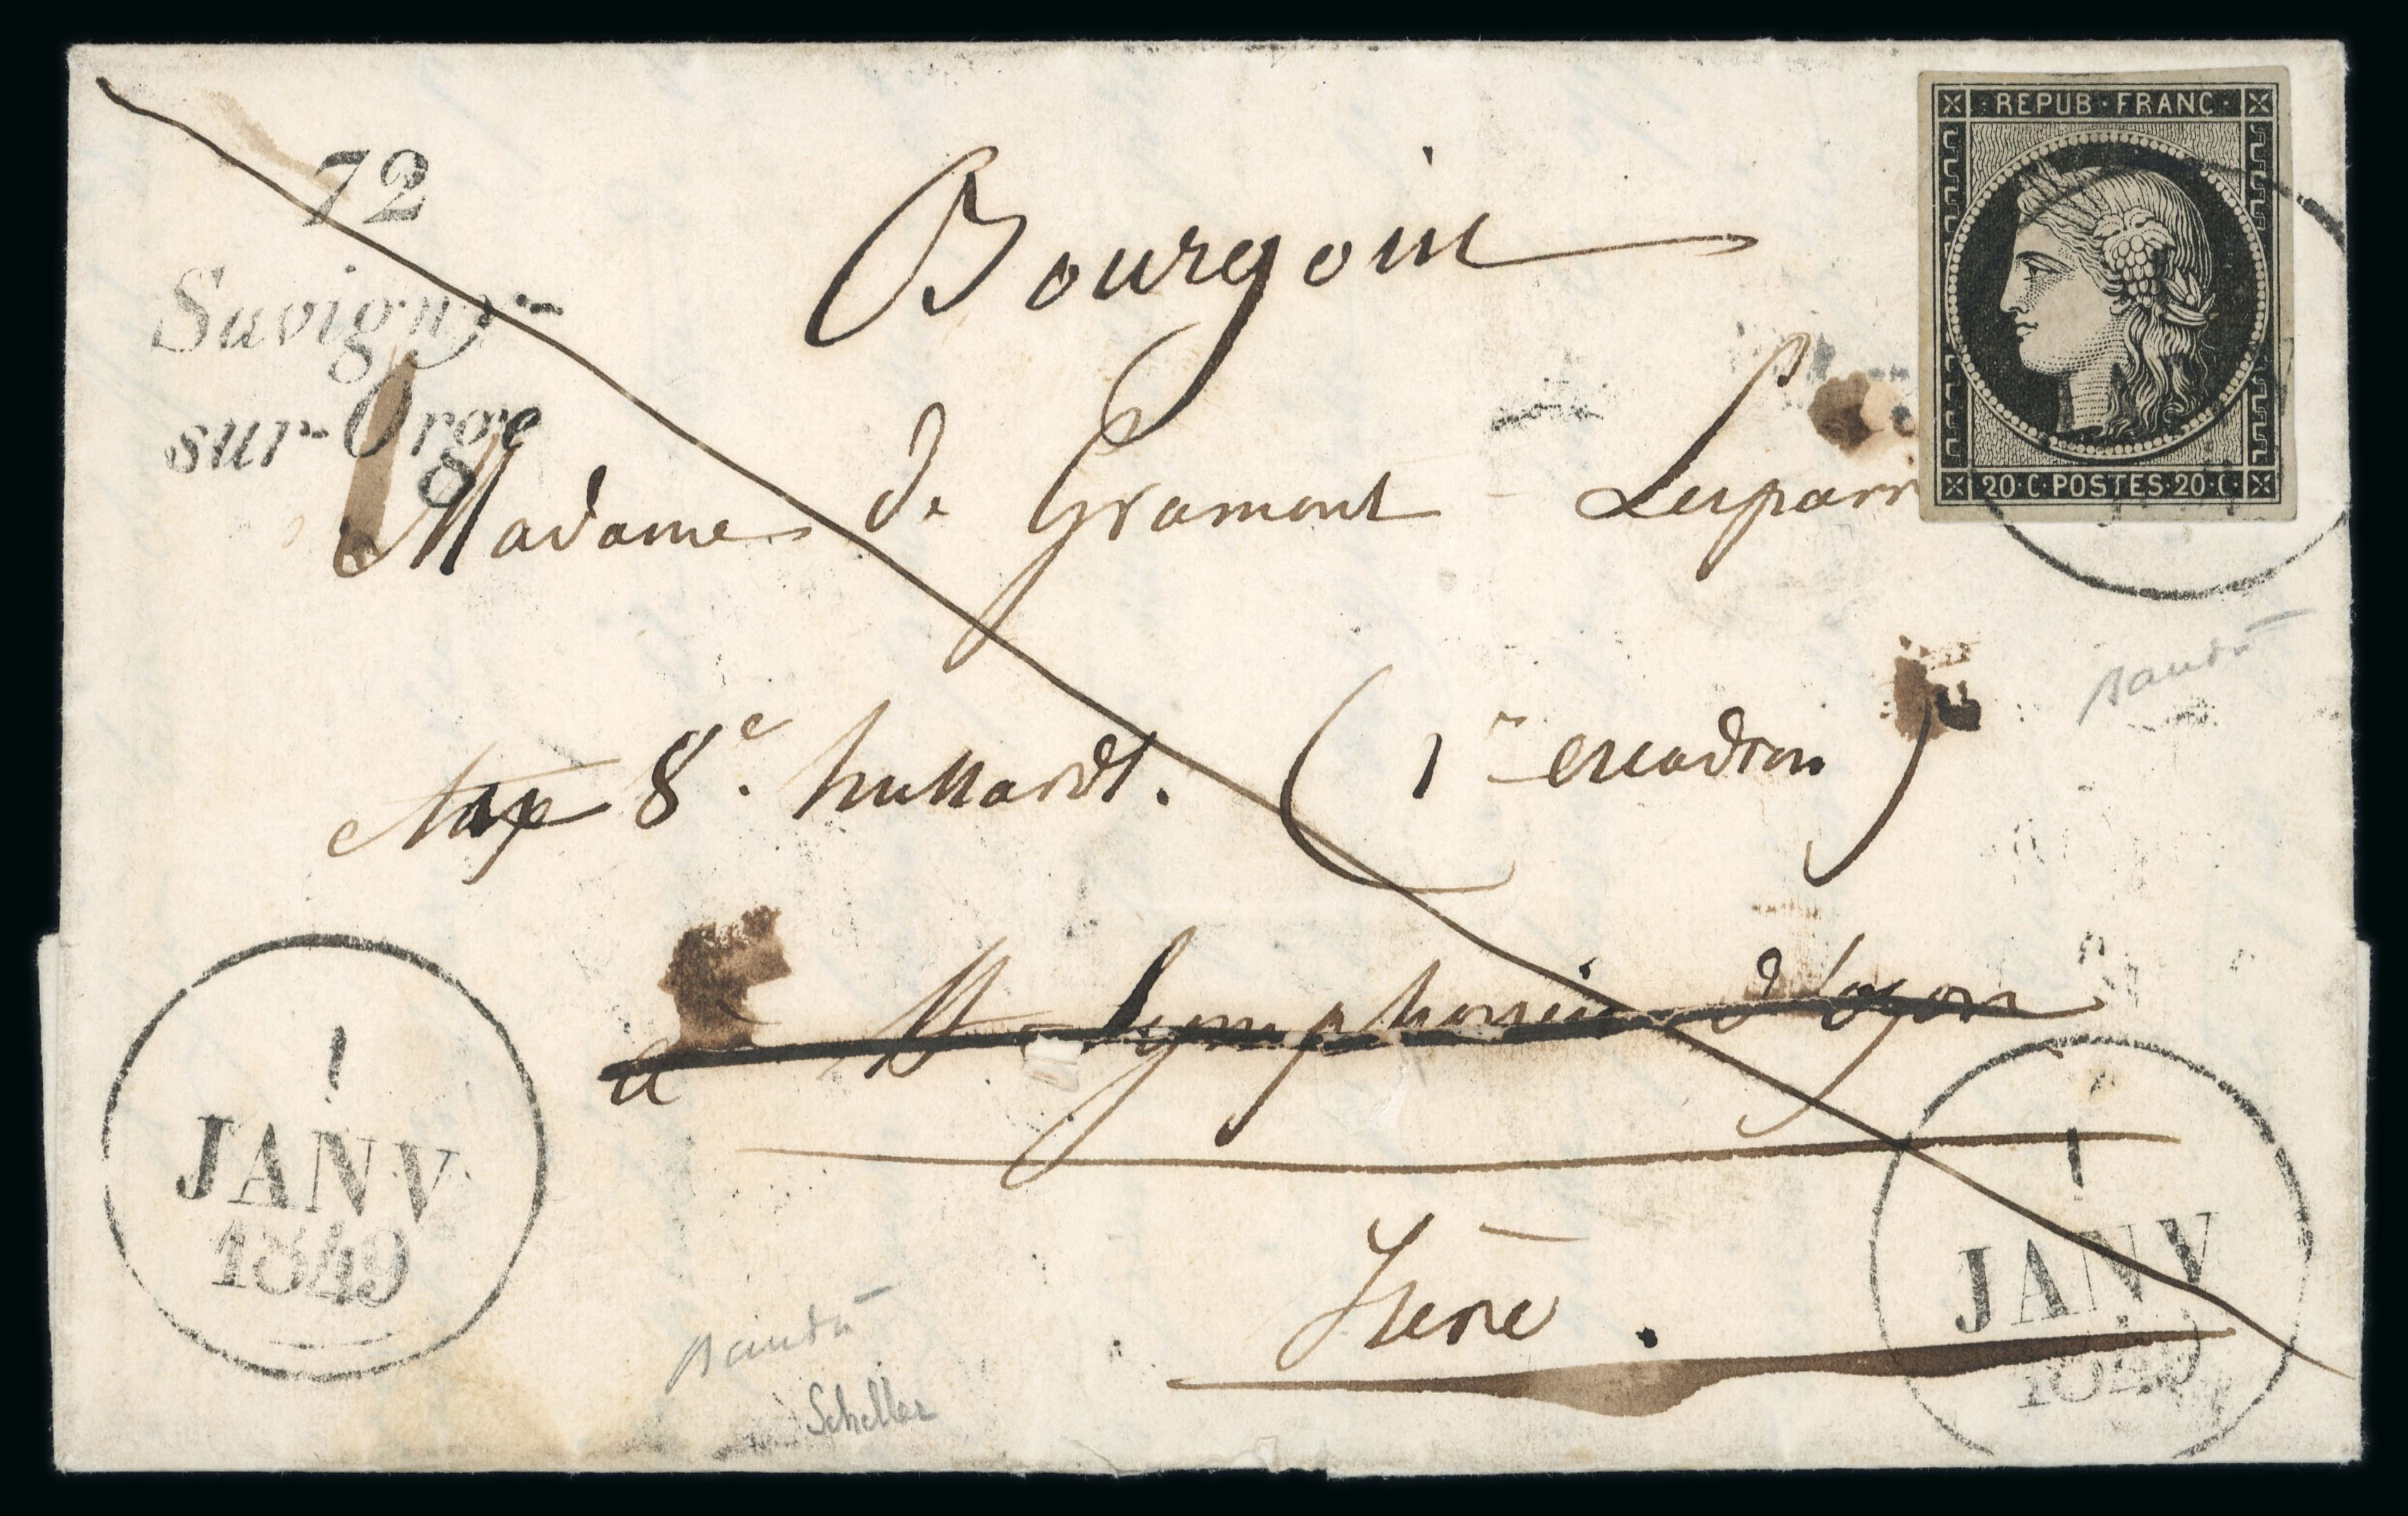 REPUB·FRANC·
20·C·POSTES·20·C·
72
Savigny-
sur-Orge
Bourgoin
Madame de Gramont - Lesparr
8e hussards. (1er escadron)
à St Symphorien d'Ozon
Isère.
1
JANV
1849
1
JANV
1849
Scheller